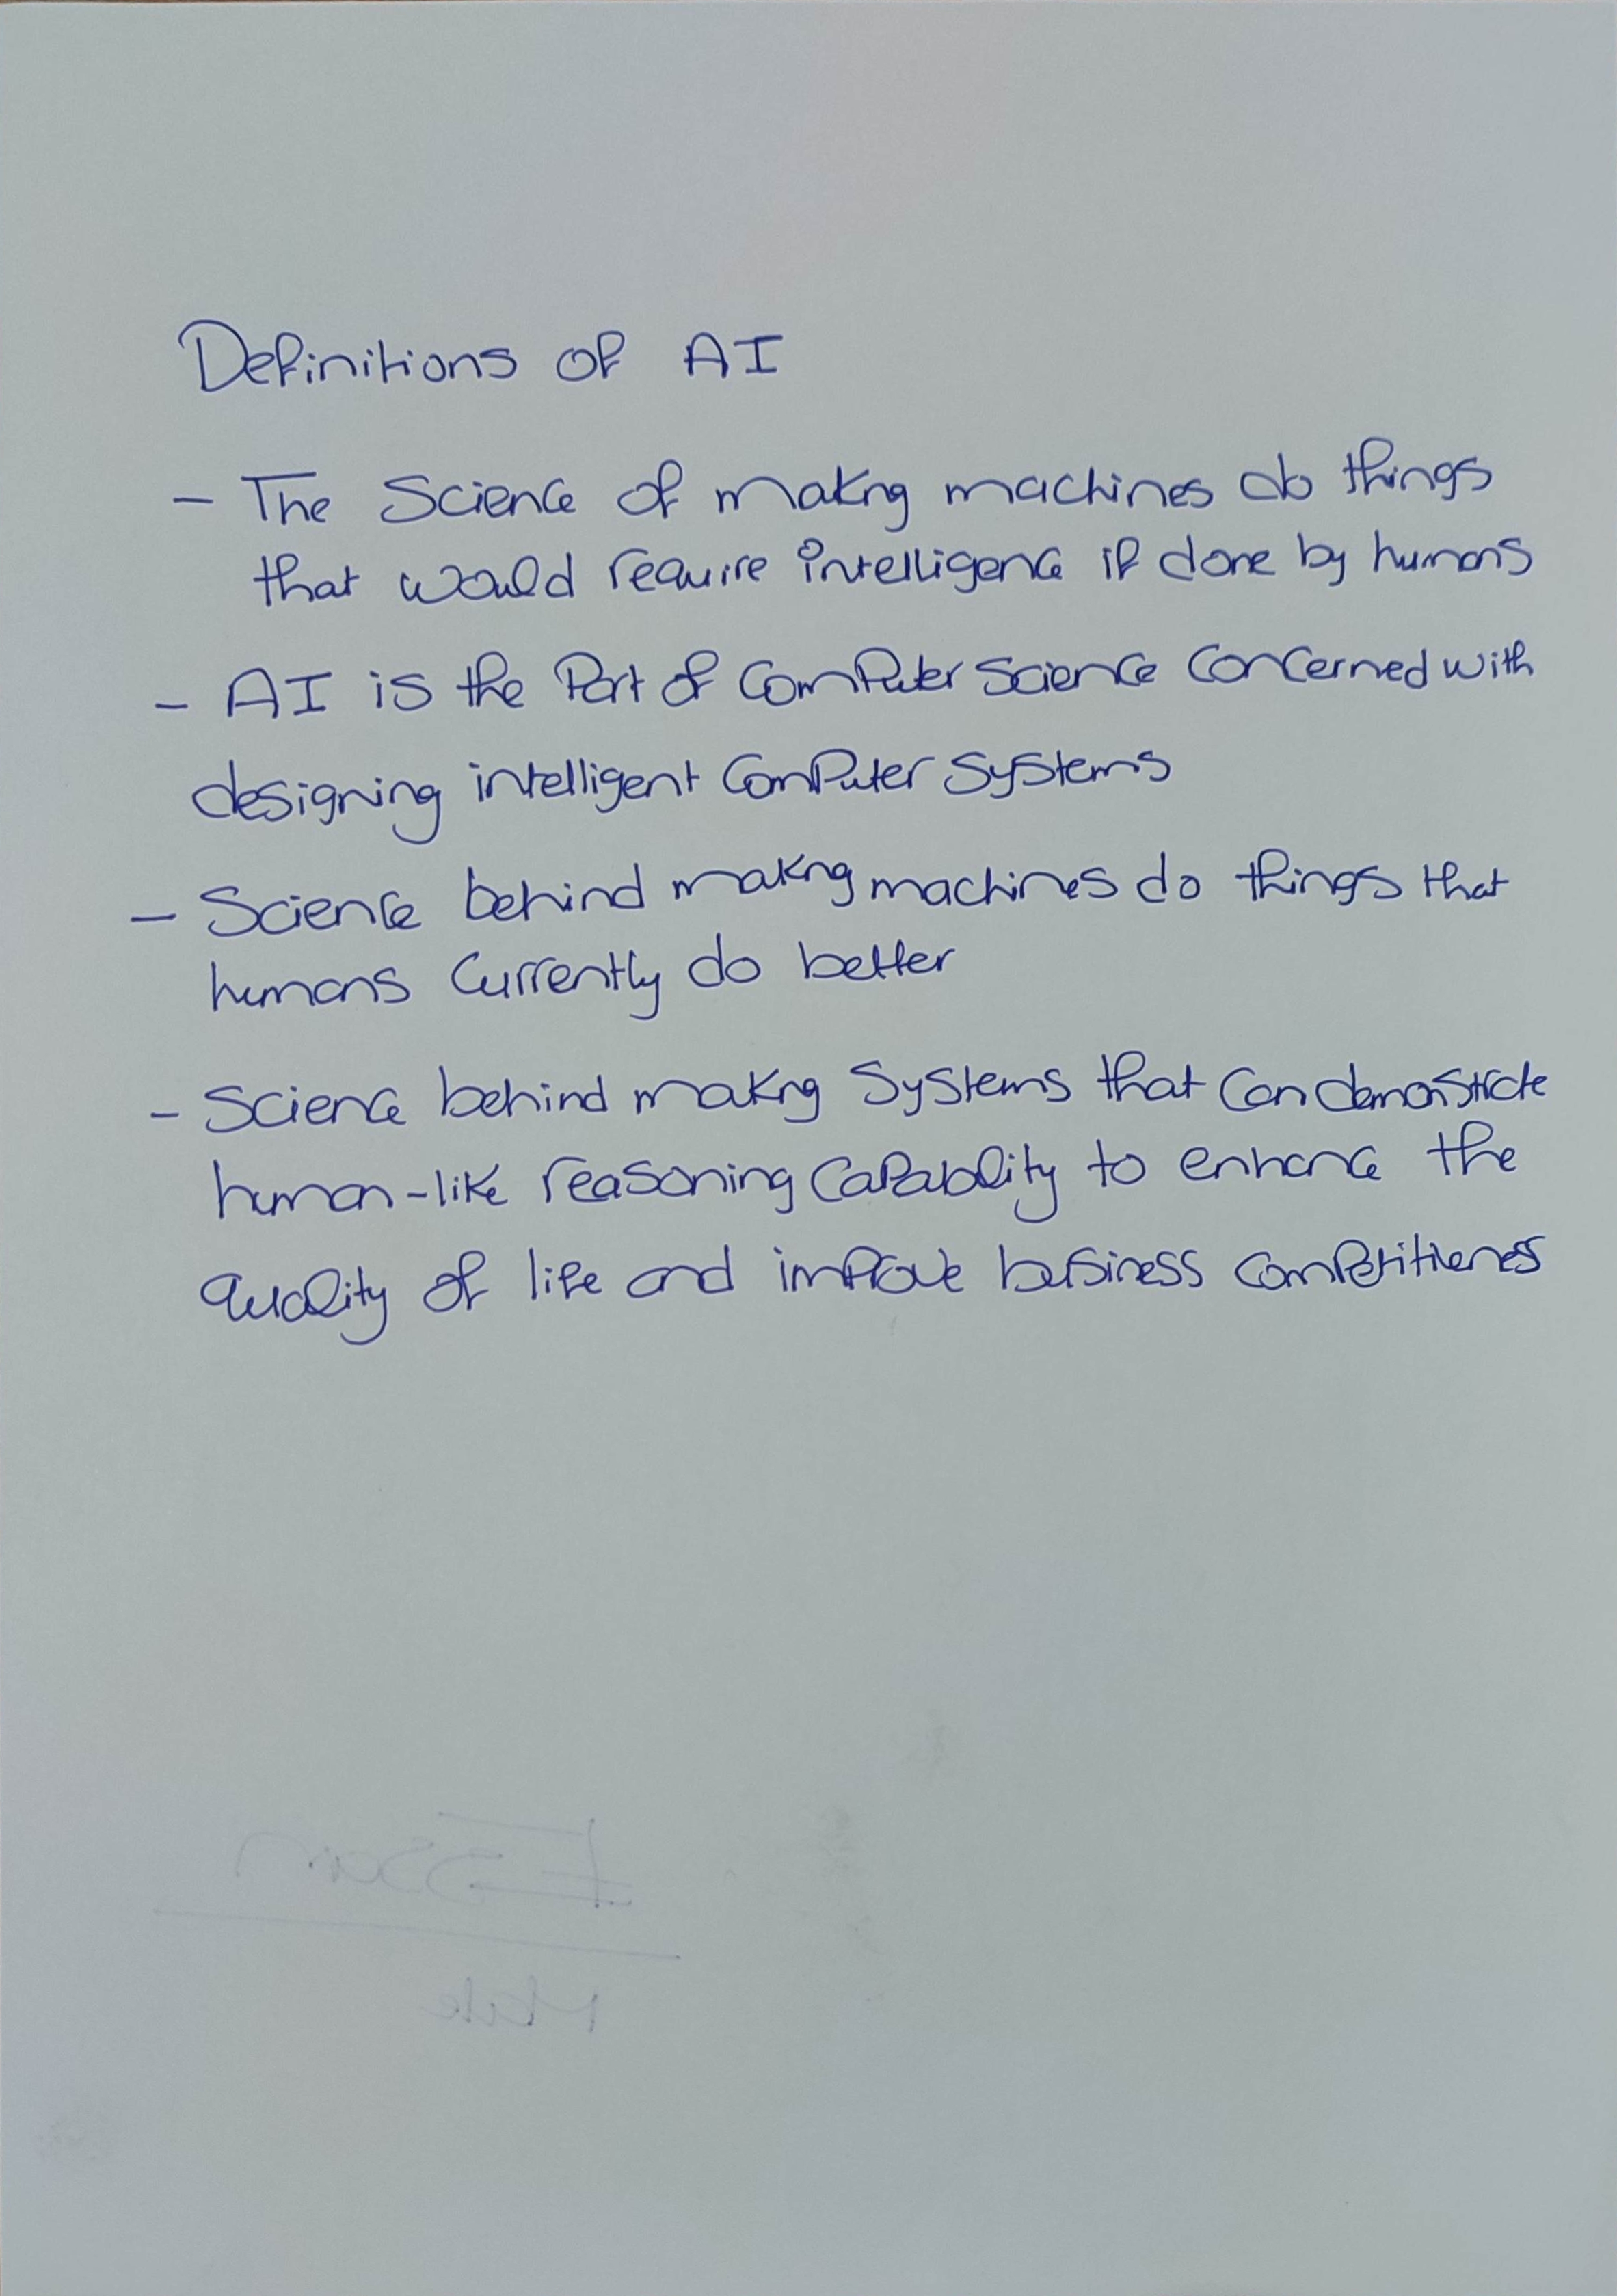 Definitions of AI
- The Science of making machines do things
that would require intelligence if done by humans
- AI is the Part of Computer Science Concerned with
designing intelligent Computer Systems
- Science behind making machines do things that
humans Currently do better
- Science behind making Systems that Can demonstrate
human-like reasoning Capability to enhance the
quality of life and improve business competitiveness